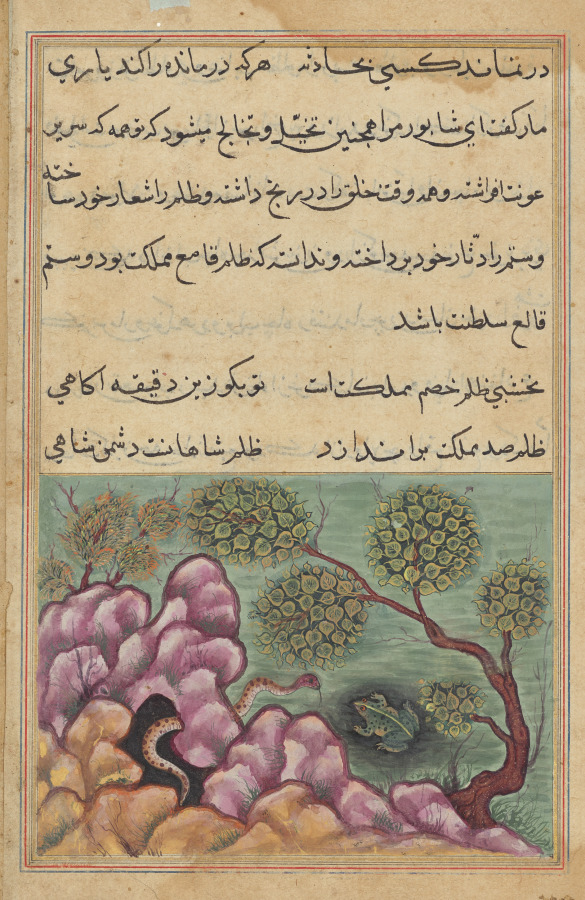 در نماند کسی بحادثه هرکه درمانده را کند یاری
مار گفت ای شاپور مرا همچنین تخیّل و تخالج میشود که تو همه که سریر
عونت افراشته و همه وقت خلق را در رنج داشته و ظلم را شعار خود ساخته
و ستم را دثّار خود پرداخته و ندانسته که ظلم قامع مملکت بود و ستم
قالع سلطنت باشد
نخشبی ظلم خصم مملکت است تو بکو زین دقیقه آکاهی
ظلم صد مملکت براندازد ظلم شاهانت دشمن شاهی